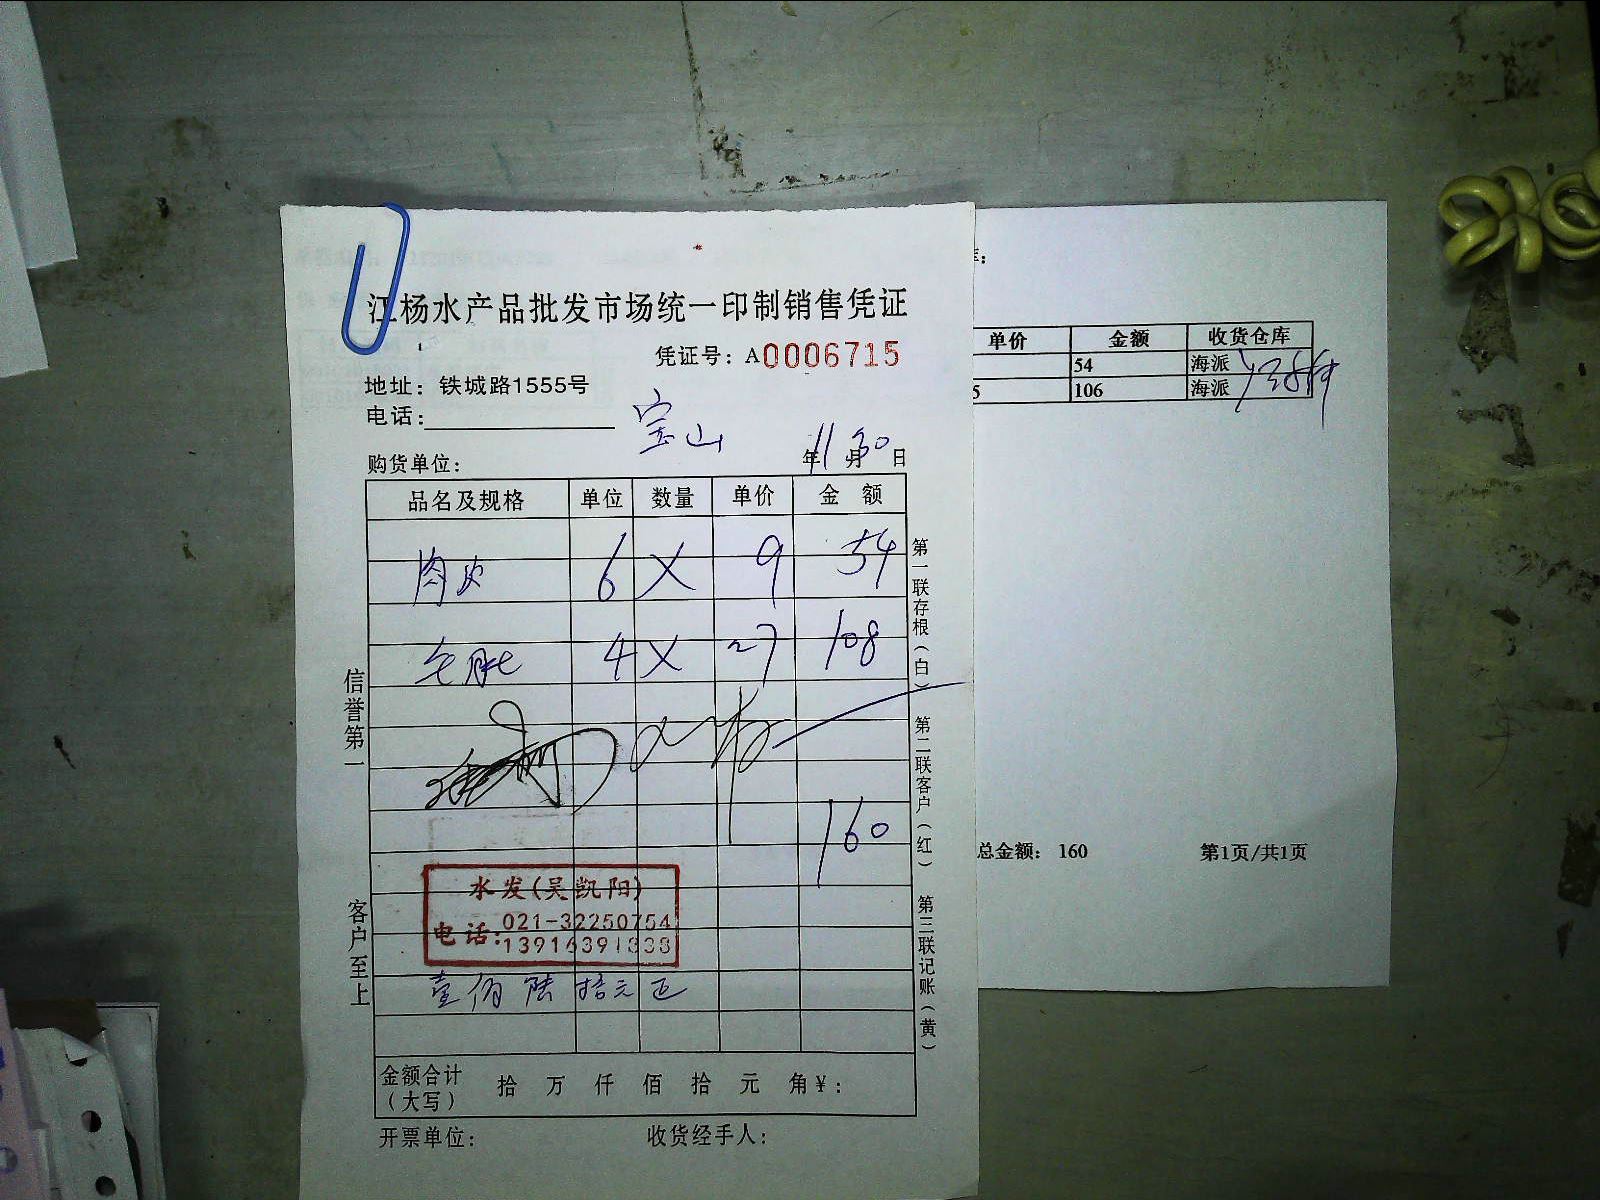 江杨水产品批发市场统一印制销售凭证
凭证号：A0006715
地址：铁城路1555号
电话：
宝山
购货单位：
年11月30日
品名及规格 单位 数量 单价 金 额
肉皮 6 X 9 54
4 X 27 108
160
水发(吴凯阳)
电话:021-32250754
13916391838
壹佰陆拾元正
金额合计（大写） 拾 万 仟 佰 拾 元 角 ¥：
开票单位： 收货经手人：
信誉第一 客户至上
第一联存根（白） 第二联客户（红） 第三联记账（黄）
库：
单价 金额 收货仓库
54 海派
5 106 海派
总金额： 160 第1页/共1页